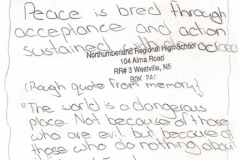 Peace is bred through
acceptance and action
sustained
Northumberland Regional High School
104 Alma Road
RR# 3 Westville, NS
B0K 2A0
(Rough quote from memory)
"The world is a dangerous
place. Not because of those
who are evil, but because of
those who do nothing about